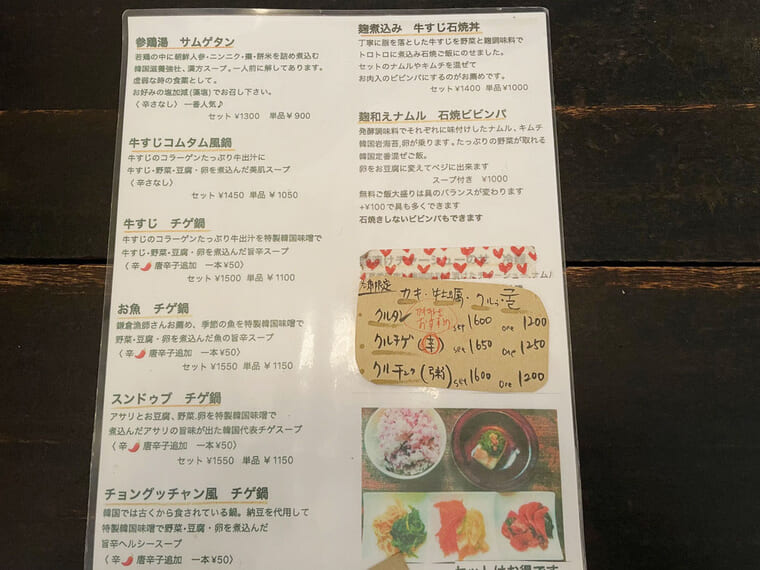 参鶏湯　サムゲタン
若鶏の中に朝鮮人参・ニンニク・棗・餅米を詰め煮込む
韓国滋養強壮、漢方スープ。一人前に解してあります。
虚弱な時の食薬として。
お好みの塩加減(藻塩)でお召し下さい。
〈 辛さなし〉 一番人気♪
セット ¥1300　単品 ¥ 900
牛すじコムタム風鍋
牛すじのコラーゲンたっぷり牛出汁に
牛すじ・野菜・豆腐・卵を煮込んだ美肌スープ
〈 辛さなし〉
セット ¥1450　単品 ¥ 1050
牛すじ　チゲ鍋
牛すじのコラーゲンたっぷり牛出汁を特製韓国味噌で
牛すじ・野菜・豆腐・卵を煮込んだ旨辛スープ
〈 辛🌶 唐辛子追加　一本 ¥50〉
セット ¥1500　単品 ¥ 1100
お魚　チゲ鍋
鎌倉漁師さんお薦め、季節の魚を特製韓国味噌で
野菜・豆腐・卵を煮込んだ魚の旨辛スープ
〈 辛🌶 唐辛子追加　一本 ¥50〉
セット ¥1550　単品 ¥ 1150
スンドゥブ　チゲ鍋
アサリとお豆腐、野菜.卵を特製韓国味噌で
煮込んだアサリの旨味が出た韓国代表チゲスープ
〈 辛🌶 唐辛子追加　一本 ¥50〉
セット ¥1550　単品 ¥ 1150
チョングッチャン風　チゲ鍋
韓国では古くから食されている鍋。納豆を代用して
特製韓国味噌で野菜・豆腐・卵を煮込んだ
旨辛ヘルシースープ
〈 辛🌶 唐辛子追加　一本 ¥50〉
麹煮込み　牛すじ石焼丼
丁寧に脂を落とした牛すじを野菜と麹調味料で
トロトロに煮込み石焼ご飯にのせました。
セットのナムルやキムチを混ぜて
お肉入のビビンパにするのがお薦めです。
セット ¥1400　単品 ¥1000
麹和えナムル　石焼ビビンパ
発酵調味料でそれぞれに味付けしたナムル、キムチ
韓国岩海苔,卵が乗ります。たっぷりの野菜が取れる
韓国定番混ぜご飯。
卵をお豆腐に変えてベジに出来ます
スープ付き　¥1000
無料ご飯大盛りは具のバランスが変わります
+¥100で具も多くできます
石焼きしないビビンパもできます
カキ・牡蠣・クル・굴
クルタン おすすめ set 1600 One 1200
クルチゲ (辛) set 1650 One 1250
クルチュク (粥) set 1600 One 1200
セットがお得です